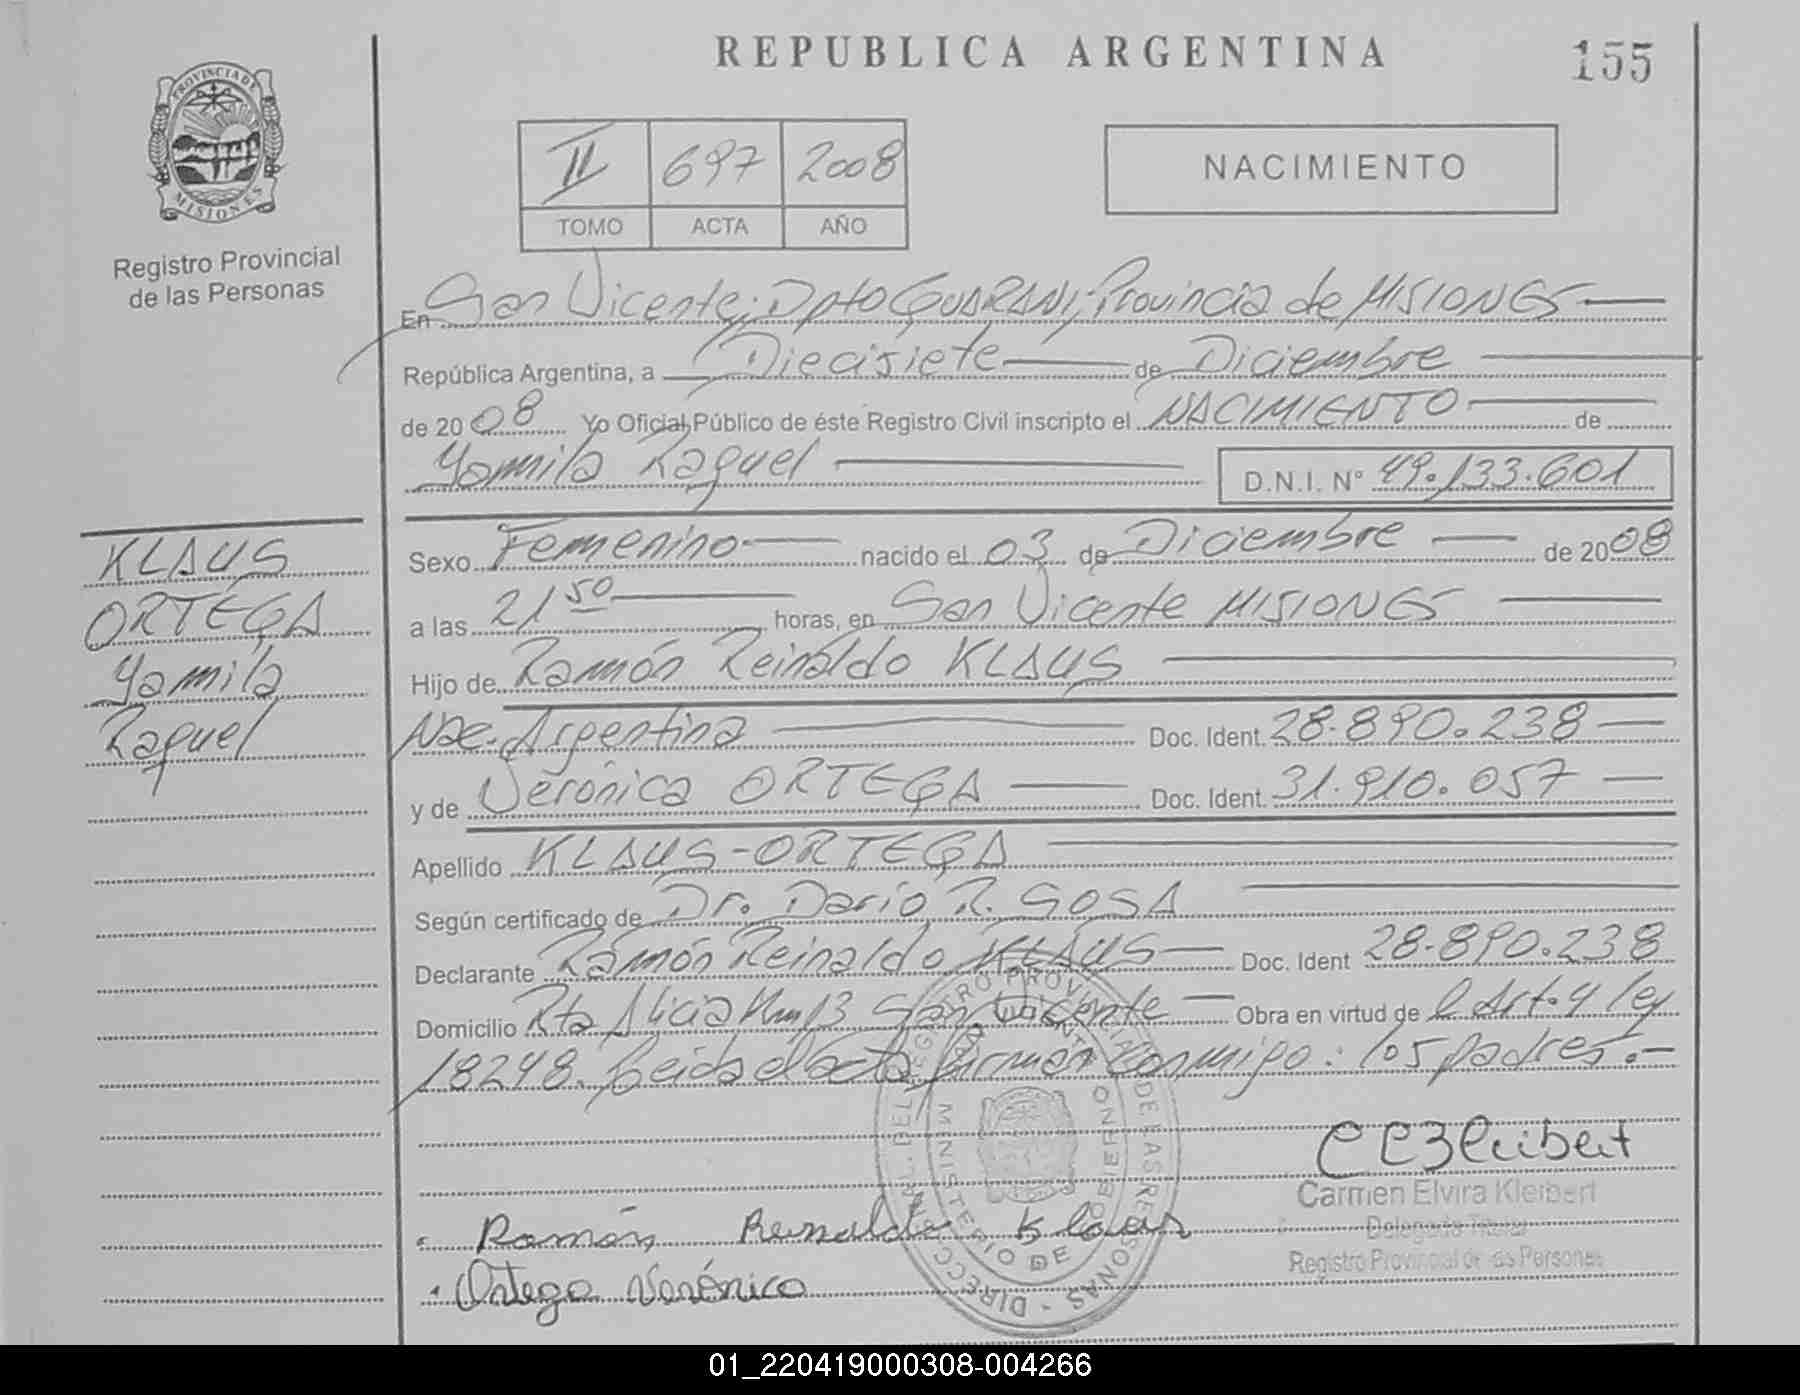 REPUBLICA ARGENTINA
155
PROVINCIA DE MISIONES
Registro Provincial
de las Personas
II 697 2008
TOMO ACTA AÑO
NACIMIENTO
En San Vicente; Dpto GUARANI; Provincia de MISIONES
República Argentina, a Diecisiete de Diciembre
de 2008 Yo Oficial Público de éste Registro Civil inscripto el NACIMIENTO de
Yamila Raquel D.N.I. Nº 49.133.601
KLAUS
ORTEGA
Yamila
Raquel
Sexo Femenino nacido el 03 de Diciembre de 2008
a las 21 50 horas, en San Vicente MISIONES
Hijo de Ramón Reinaldo KLAUS
Nac. Argentina Doc. Ident. 28.890.238
y de Verónica ORTEGA Doc. Ident. 31.910.057
Apellido KLAUS-ORTEGA
Según certificado de Dr. Dario R. SOSA
Declarante Ramón Reinaldo KLAUS Doc. Ident 28.890.238
Domicilio Rta Alicia Km 13 San Vicente Obra en virtud de l Art. 4 ley
18248. Leida el acta firman conmigo: los padres.-
Carmen Elvira Kleibert
Delegada Titular
Registro Provincial de las Personas
Ramón Reinaldo Klaus
Ortega Verónica
MINISTERIO DE GOBIERNO
01_220419000308-004266